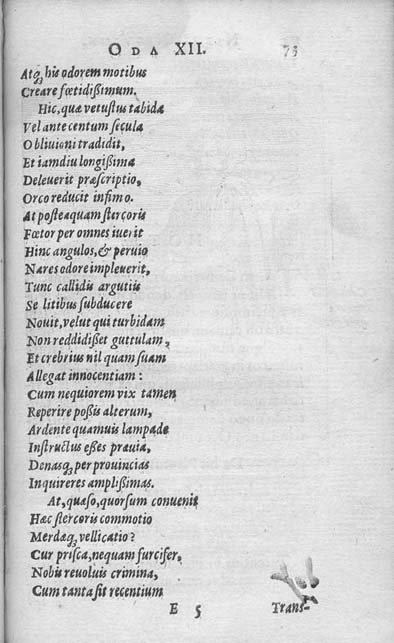 ODA XII. 75
Atq; his odorem motibus
Creare fœtidißimum.
Hic, quæ vetustus tabida
Vel ante centum secula
Obliuioni tradidit,
Et iamdiu longißima
Deleuerit præscriptio,
Orco reducit infimo.
At posteaquam stercoris
Fœtor per omnes iuerit
Hinc angulos, & peruio
Nares odore impleuerit,
Tunc callidis argutiis
Se litibus subducere
Nouit, velut qui turbidam
Non reddidißet guttulam,
Et crebrius nil quam suam
Allegat innocentiam:
Cum nequiorem vix tamen
Reperire poßis alterum,
Ardente quamuis lampade
Instructus eßes prauia,
Denasq; per prouincias
Inquireres amplißimas.
At, quæso, quorsum conuenit
Hæc stercoris commotio
Merdæq; vellicatio?
Cur prisca, nequam furcifer,
Nobis reuoluis crimina,
Cum tanta sit recentium
E 5 Trans-